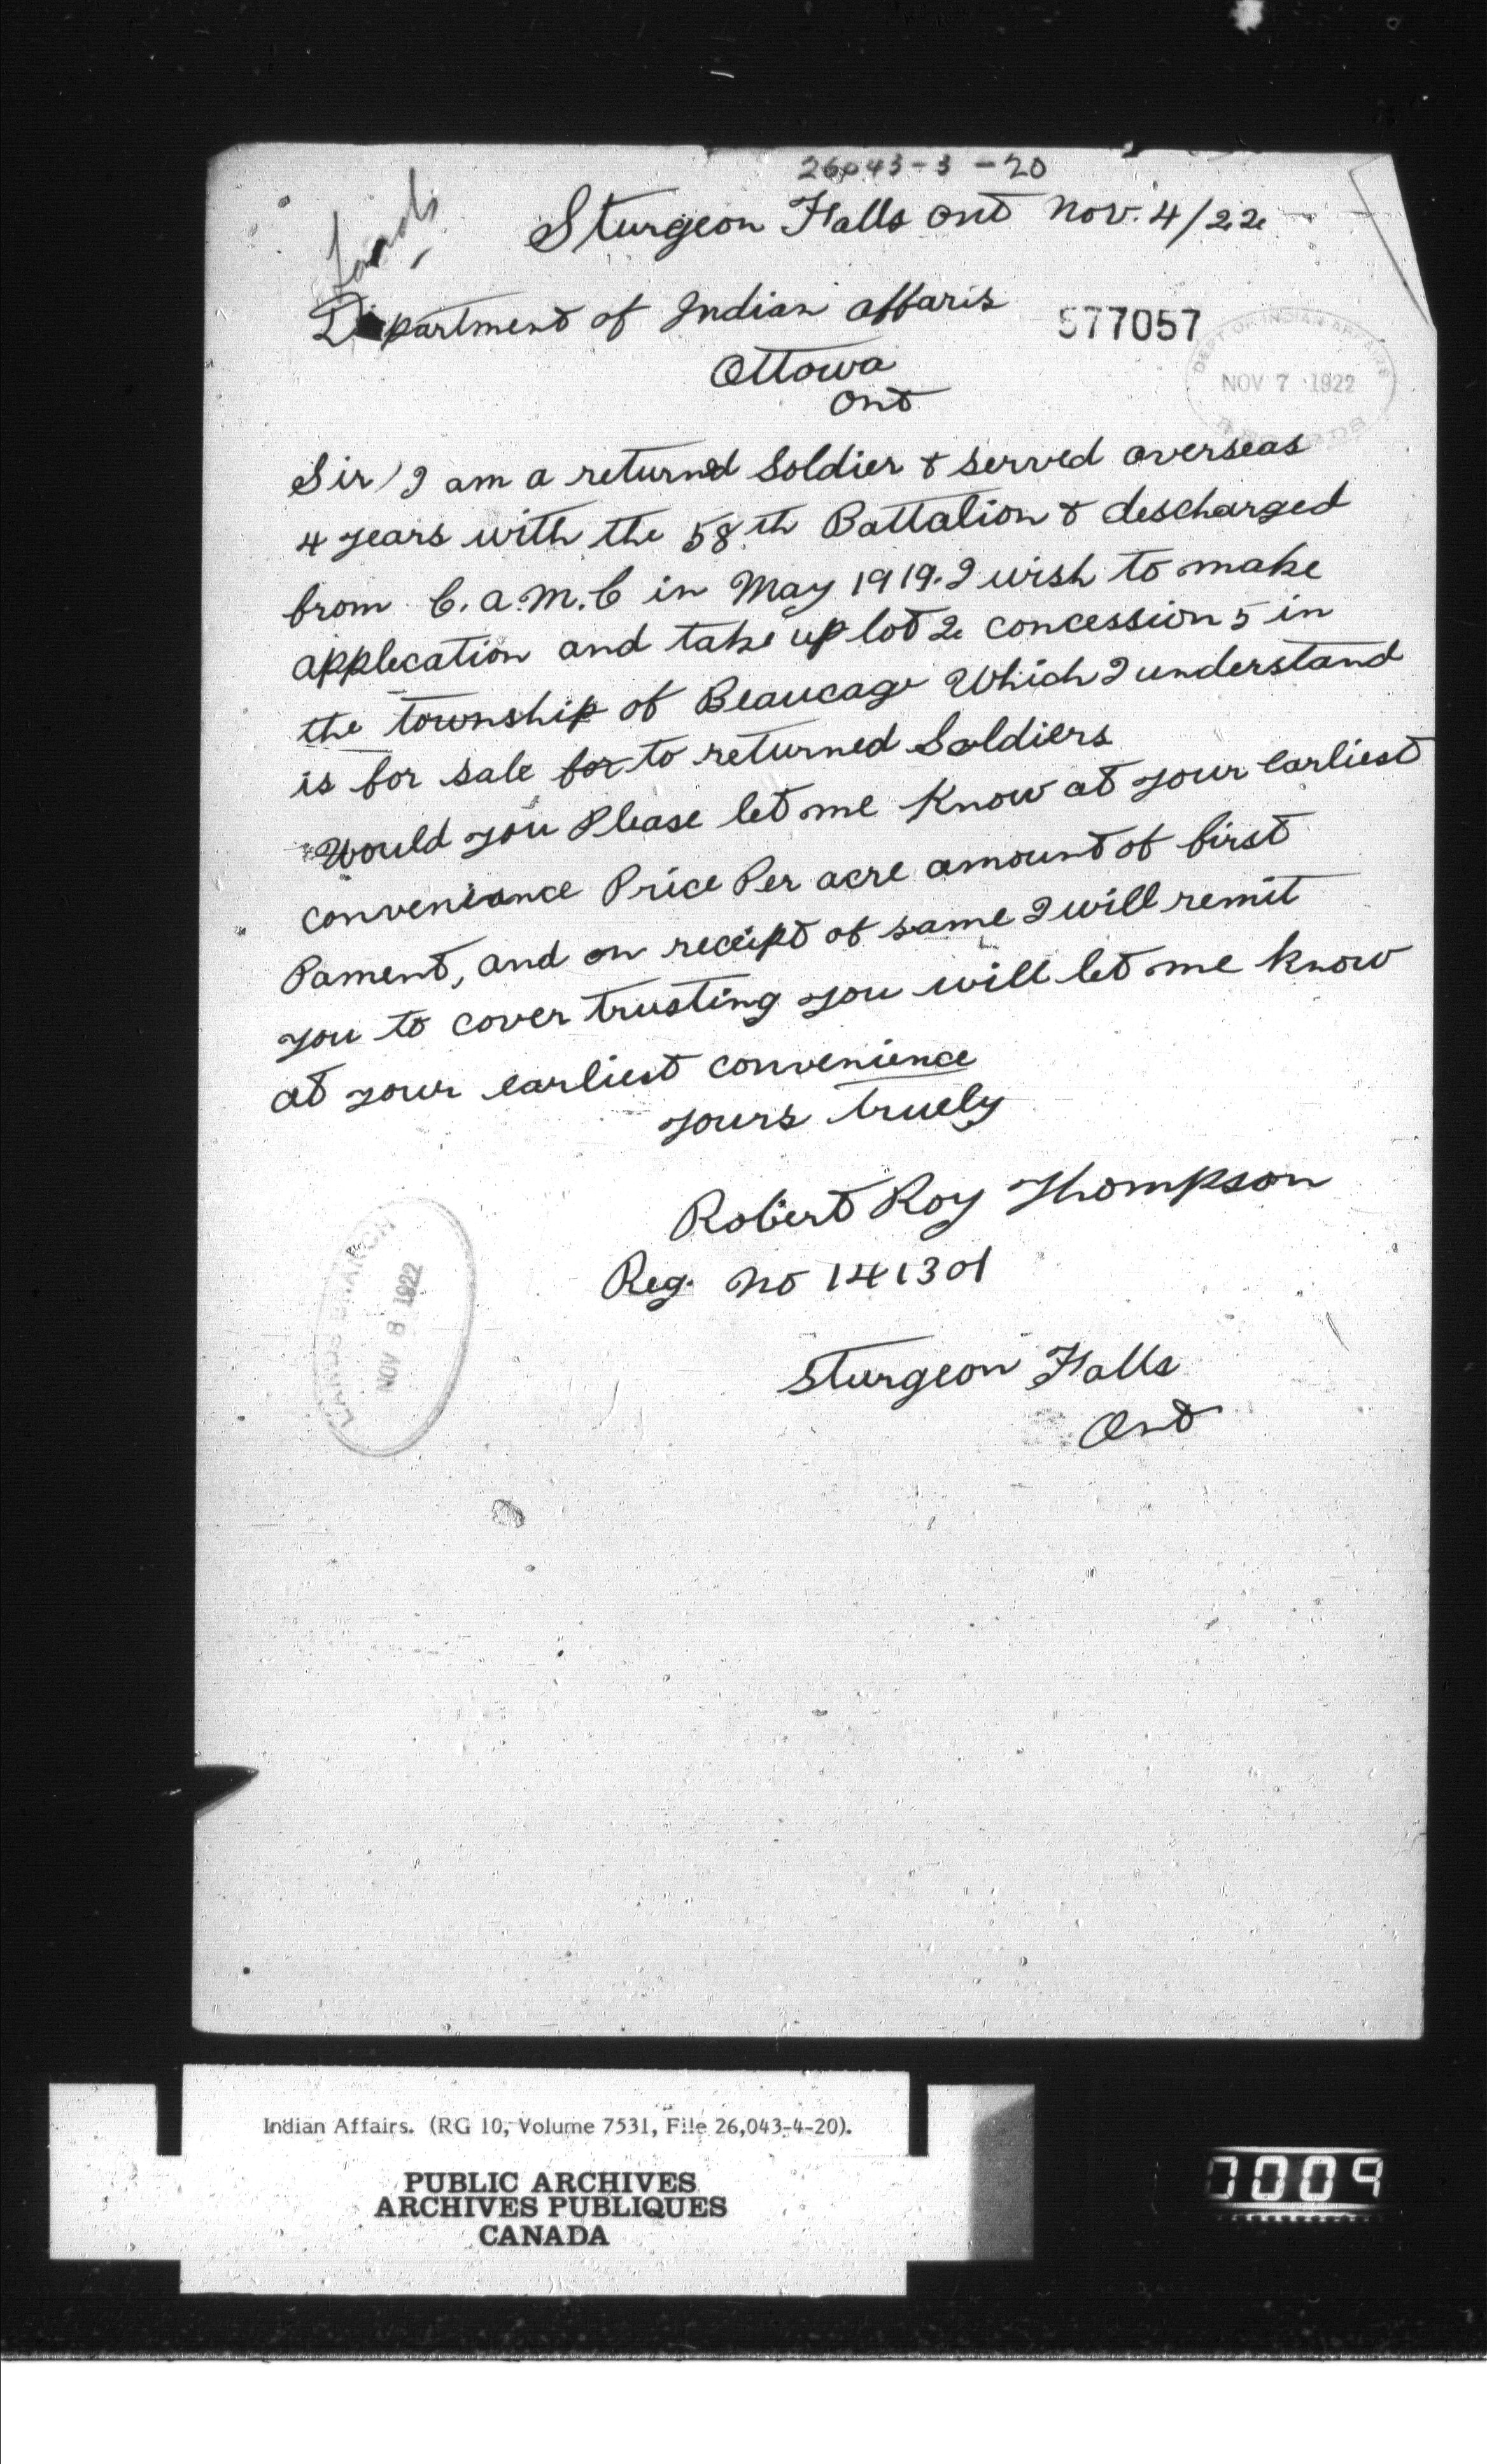 26043-3-20
Lands
Sturgeon Falls Ont Nov. 4/22
Department of Indian affaris
577057
DEPT OF INDIAN AFFAIRS
NOV 7 1922
RECORDS
Ottowa
Ont
Sir) I am a returnd Soldier & served overseas
4 years with the 58th Battalion & descharged
from C.a.M.C in May 1919. I wish to make
applecation and take up lot 2 concession 5 in
the township of Beaucage Which I understand
is for sale for to returned Soldiers
Would you Please let me Know at your earliest
conveniance Price Per acre amount of first
Pament, and on receipt of same I will remit
you to cover trusting you will let me know
at your earliest convenience
yours truely
Robert Roy Thompson
Reg. No 141301
Sturgeon Falls
Ont
LANDS BRANCH
NOV 8 1922
Indian Affairs. (RG 10, Volume 7531, File 26,043-4-20).
PUBLIC ARCHIVES
ARCHIVES PUBLIQUES
CANADA
0009